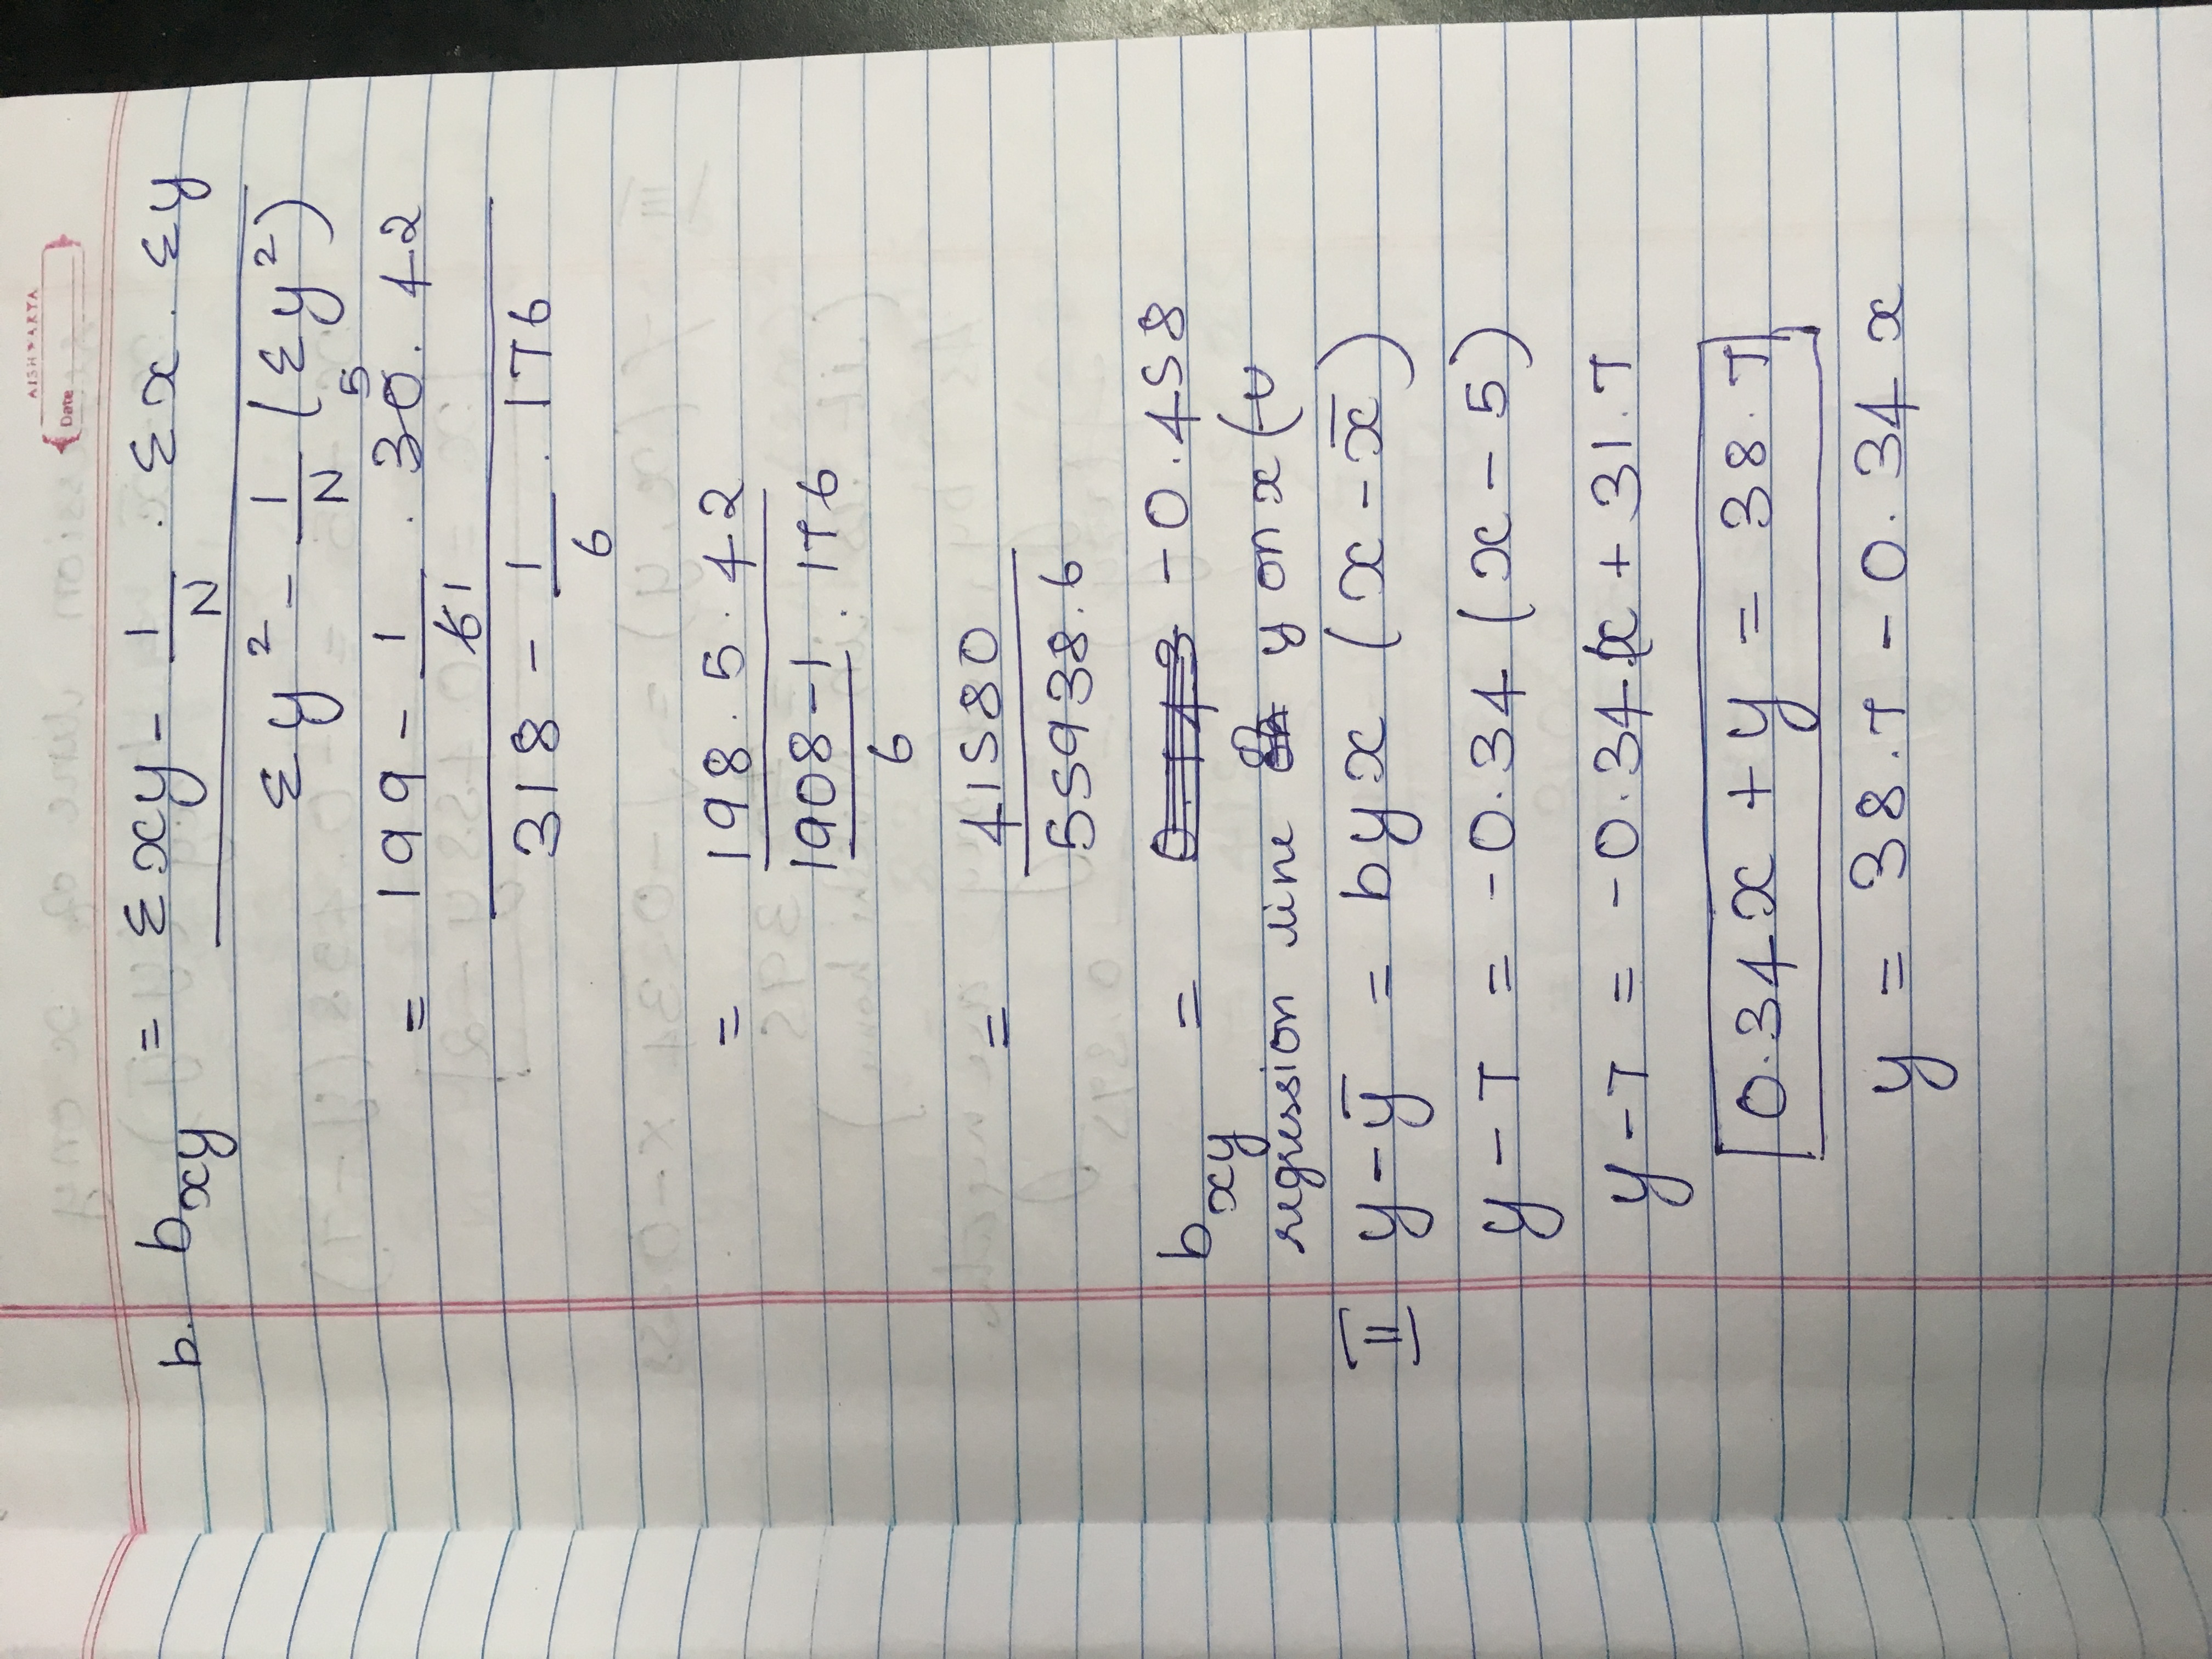 AISHWARYA
Date
b. bxy = Σxy - 1/N . Σx . Σy
Σy² - 1/N (Σy²)
5
= 199 - 1/61 . 30 . 42
318 - 1/6 . 176
= 198 . 5 . 42
1908 - 1/6 . 176
= 41580
55938.6
bxy = 0.743 -0.458
regression line y on x (
II y - ȳ = byx (x - x̄)
y - 7 = -0.34 (x - 5)
y - 7 = -0.34x + 31.7
0.34x + y = 38.7
y = 38.7 - 0.34x